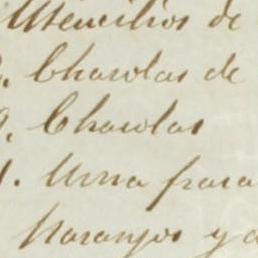 Utencilios de
. Charolas de
. Charolas
1. Urna para
Naranjos y